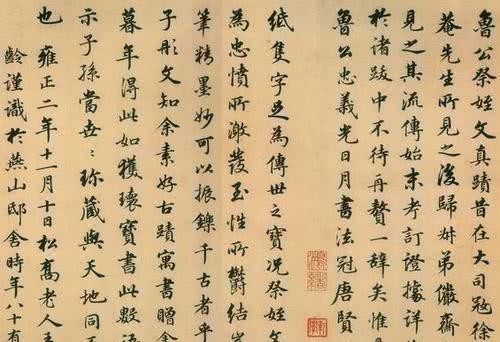 魯公祭姪文真蹟昔在大司寇徐
菴先生所見之後歸弟儼齋
見之其流傳始末考訂證據詳
於諸跋中不待再贅一辭矣惟
魯公忠義光日月書法冠唐賢
紙隻字足為傳世之寶況祭姪文
為忠憤所激發至性所鬱結
筆精墨妙可以振鑠千古者乎
子彤文知余素好古蹟寓書贈余
暮年得此如獲瓌寶書此數語
示子孫當世〻珍藏與天地同
也雍正二年十一月十日松喬老人王
齡謹識於燕山邸舍時年八十有